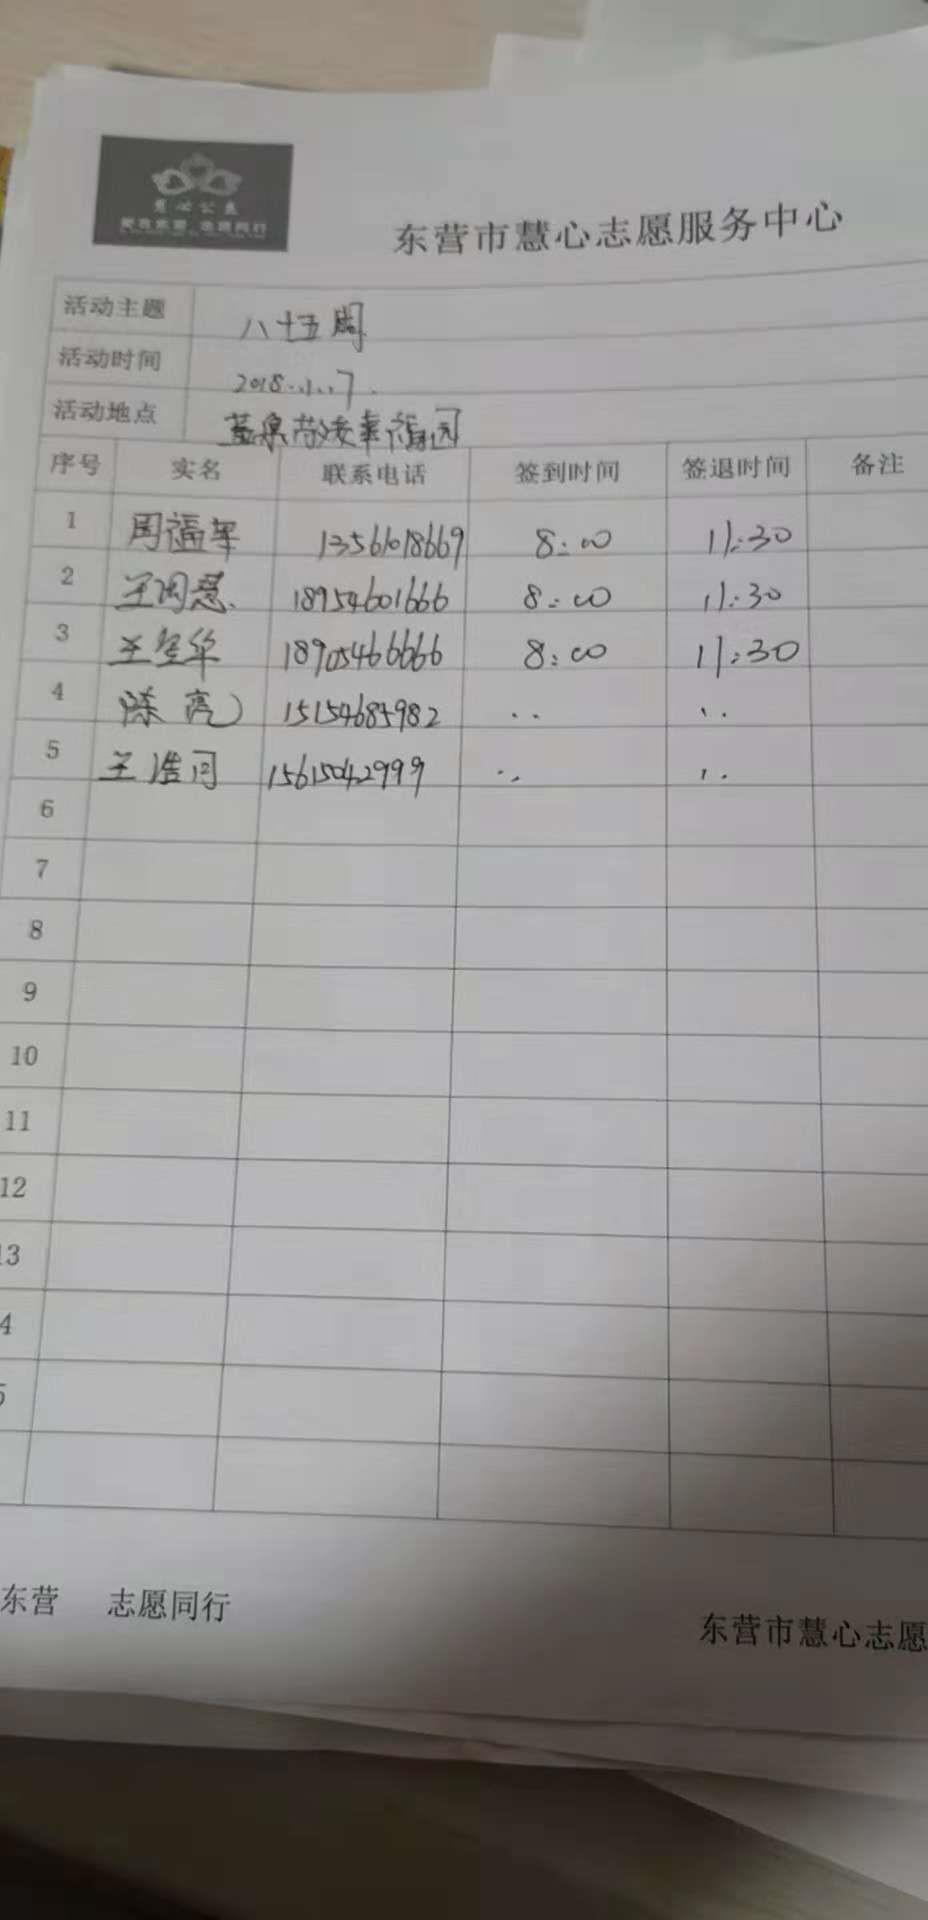 慧心公益
爱在东营、志愿同行
东营市慧心志愿服务中心
活动主题 八十五周
活动时间 2018.11.17.
活动地点 蓝泉 幸福园
序号 实名 联系电话 签到时间 签退时间 备注
1 周福军 13561018669 8:00 11:30
2 王 慧 18954601666 8:00 11:30
3 王 华 18905466666 8:00 11:30
4 陈亮 15154684982 .. ..
5 王浩同 15615042999 .. ..
6
7
8
9
10
11
12
13
4
5
东营 志愿同行
东营市慧心志愿